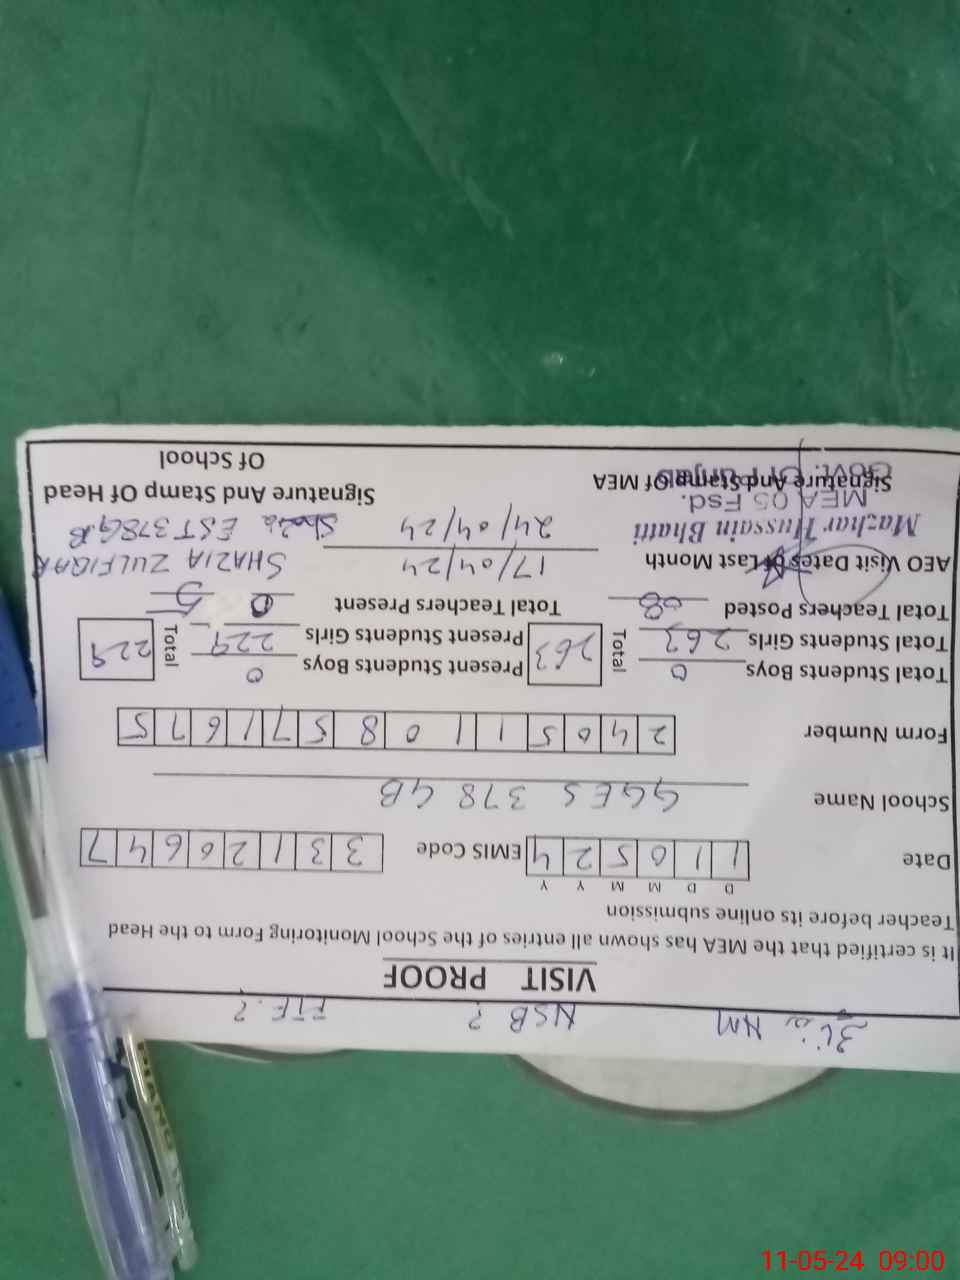 NM NSB ? FTF. ?
VISIT PROOF
It is certified that the MEA has shown all entries of the School Monitoring Form to the Head
Teacher before its online submission
D D M M Y Y
Date 1 1 0 5 2 4 EMIS Code 3 3 1 2 0 6 4 7
School Name GGES 378 GB
Form Number 2 4 0 5 1 1 0 8 5 7 1 6 7 5
Total Students Boys 0 Total 263 Present Students Boys 0 Total 229
Total Students Girls 263 Present Students Girls 229
Total Teachers Posted 08 Total Teachers Present 0 5
AEO Visit Dates Of Last Month 17/04/24 SHAZIA ZULFIQAR
24/04/24 EST 378G.B
Mazhar Hussain Bhatti
MEA 05 Fsd.
Govt. Of Punjab
Signature And Stamp Of MEA Signature And Stamp Of Head
Of School
PIANO
11-05-24 09:00